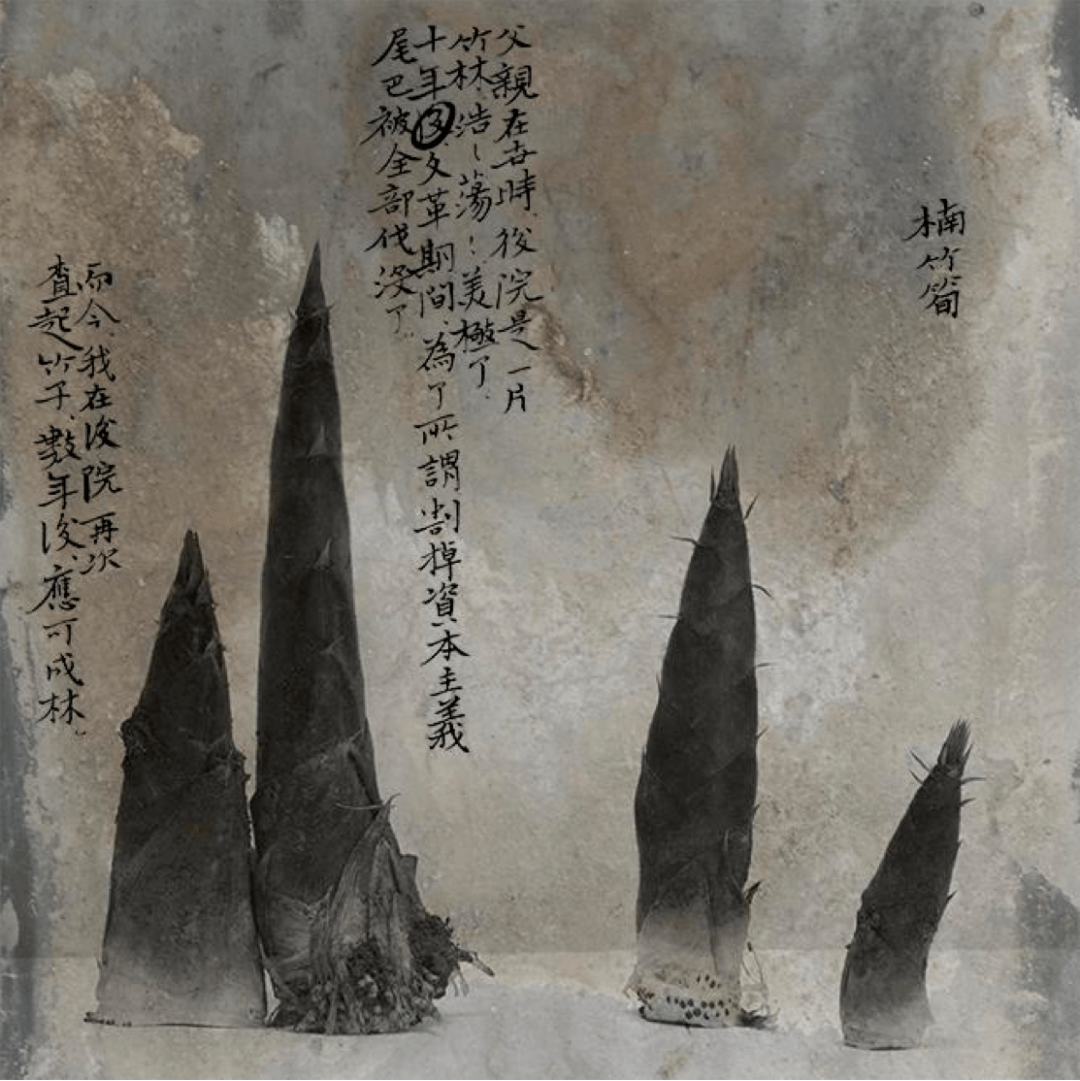 楠竹筍
父親在世時、後院是一片
竹林、浩浩蕩蕩、美極了.
十年文革期間、為了所謂割掉資本主義
尾巴被全部伐沒了..
而今、我在後院再次
植起竹子、數年後、應可成林.